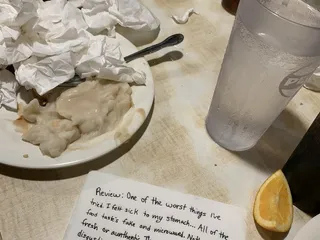 Review: One of the worst things I've
tried I felt sick to my stomach... All of the
food taste's fake and microwaved. Not
fresh or authentic.